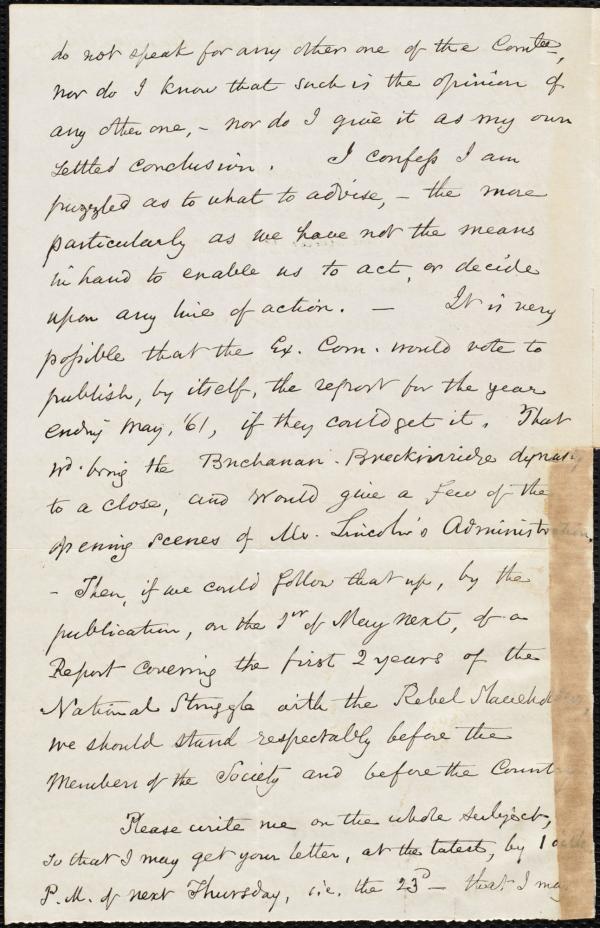 do not speak for any other one of the Comtee,
nor do I know that such is the opinion of
any other one, - nor do I give it as my own
settled conclusion. I confess I am
puzzled as to what to advise, - the more
particularly as we have not the means
in hand to enable us to act, or decide
upon any line of action. - It is very
possible that the Ex. Com. would vote to
publish, by itself, the report for the year
ending May, '61, if they could get it. That
wd. bring the Buchanan-Breckinridge dynasty
to a close, and would give a few of the
opening scenes of Mr. Lincoln's Administration.
- Then, if we could follow that up, by the
publication, on the 1st of May next, of a
Report covering the first 2 years of the
National Struggle with the Rebel Slaveholders,
we should stand respectably before the
Members of the Society and before the Country
Please write me on the whole subject,
so that I may get your letter, at the latest, by 1 o'clk
P.M. of next Thursday, i.e. the 23d - that I may